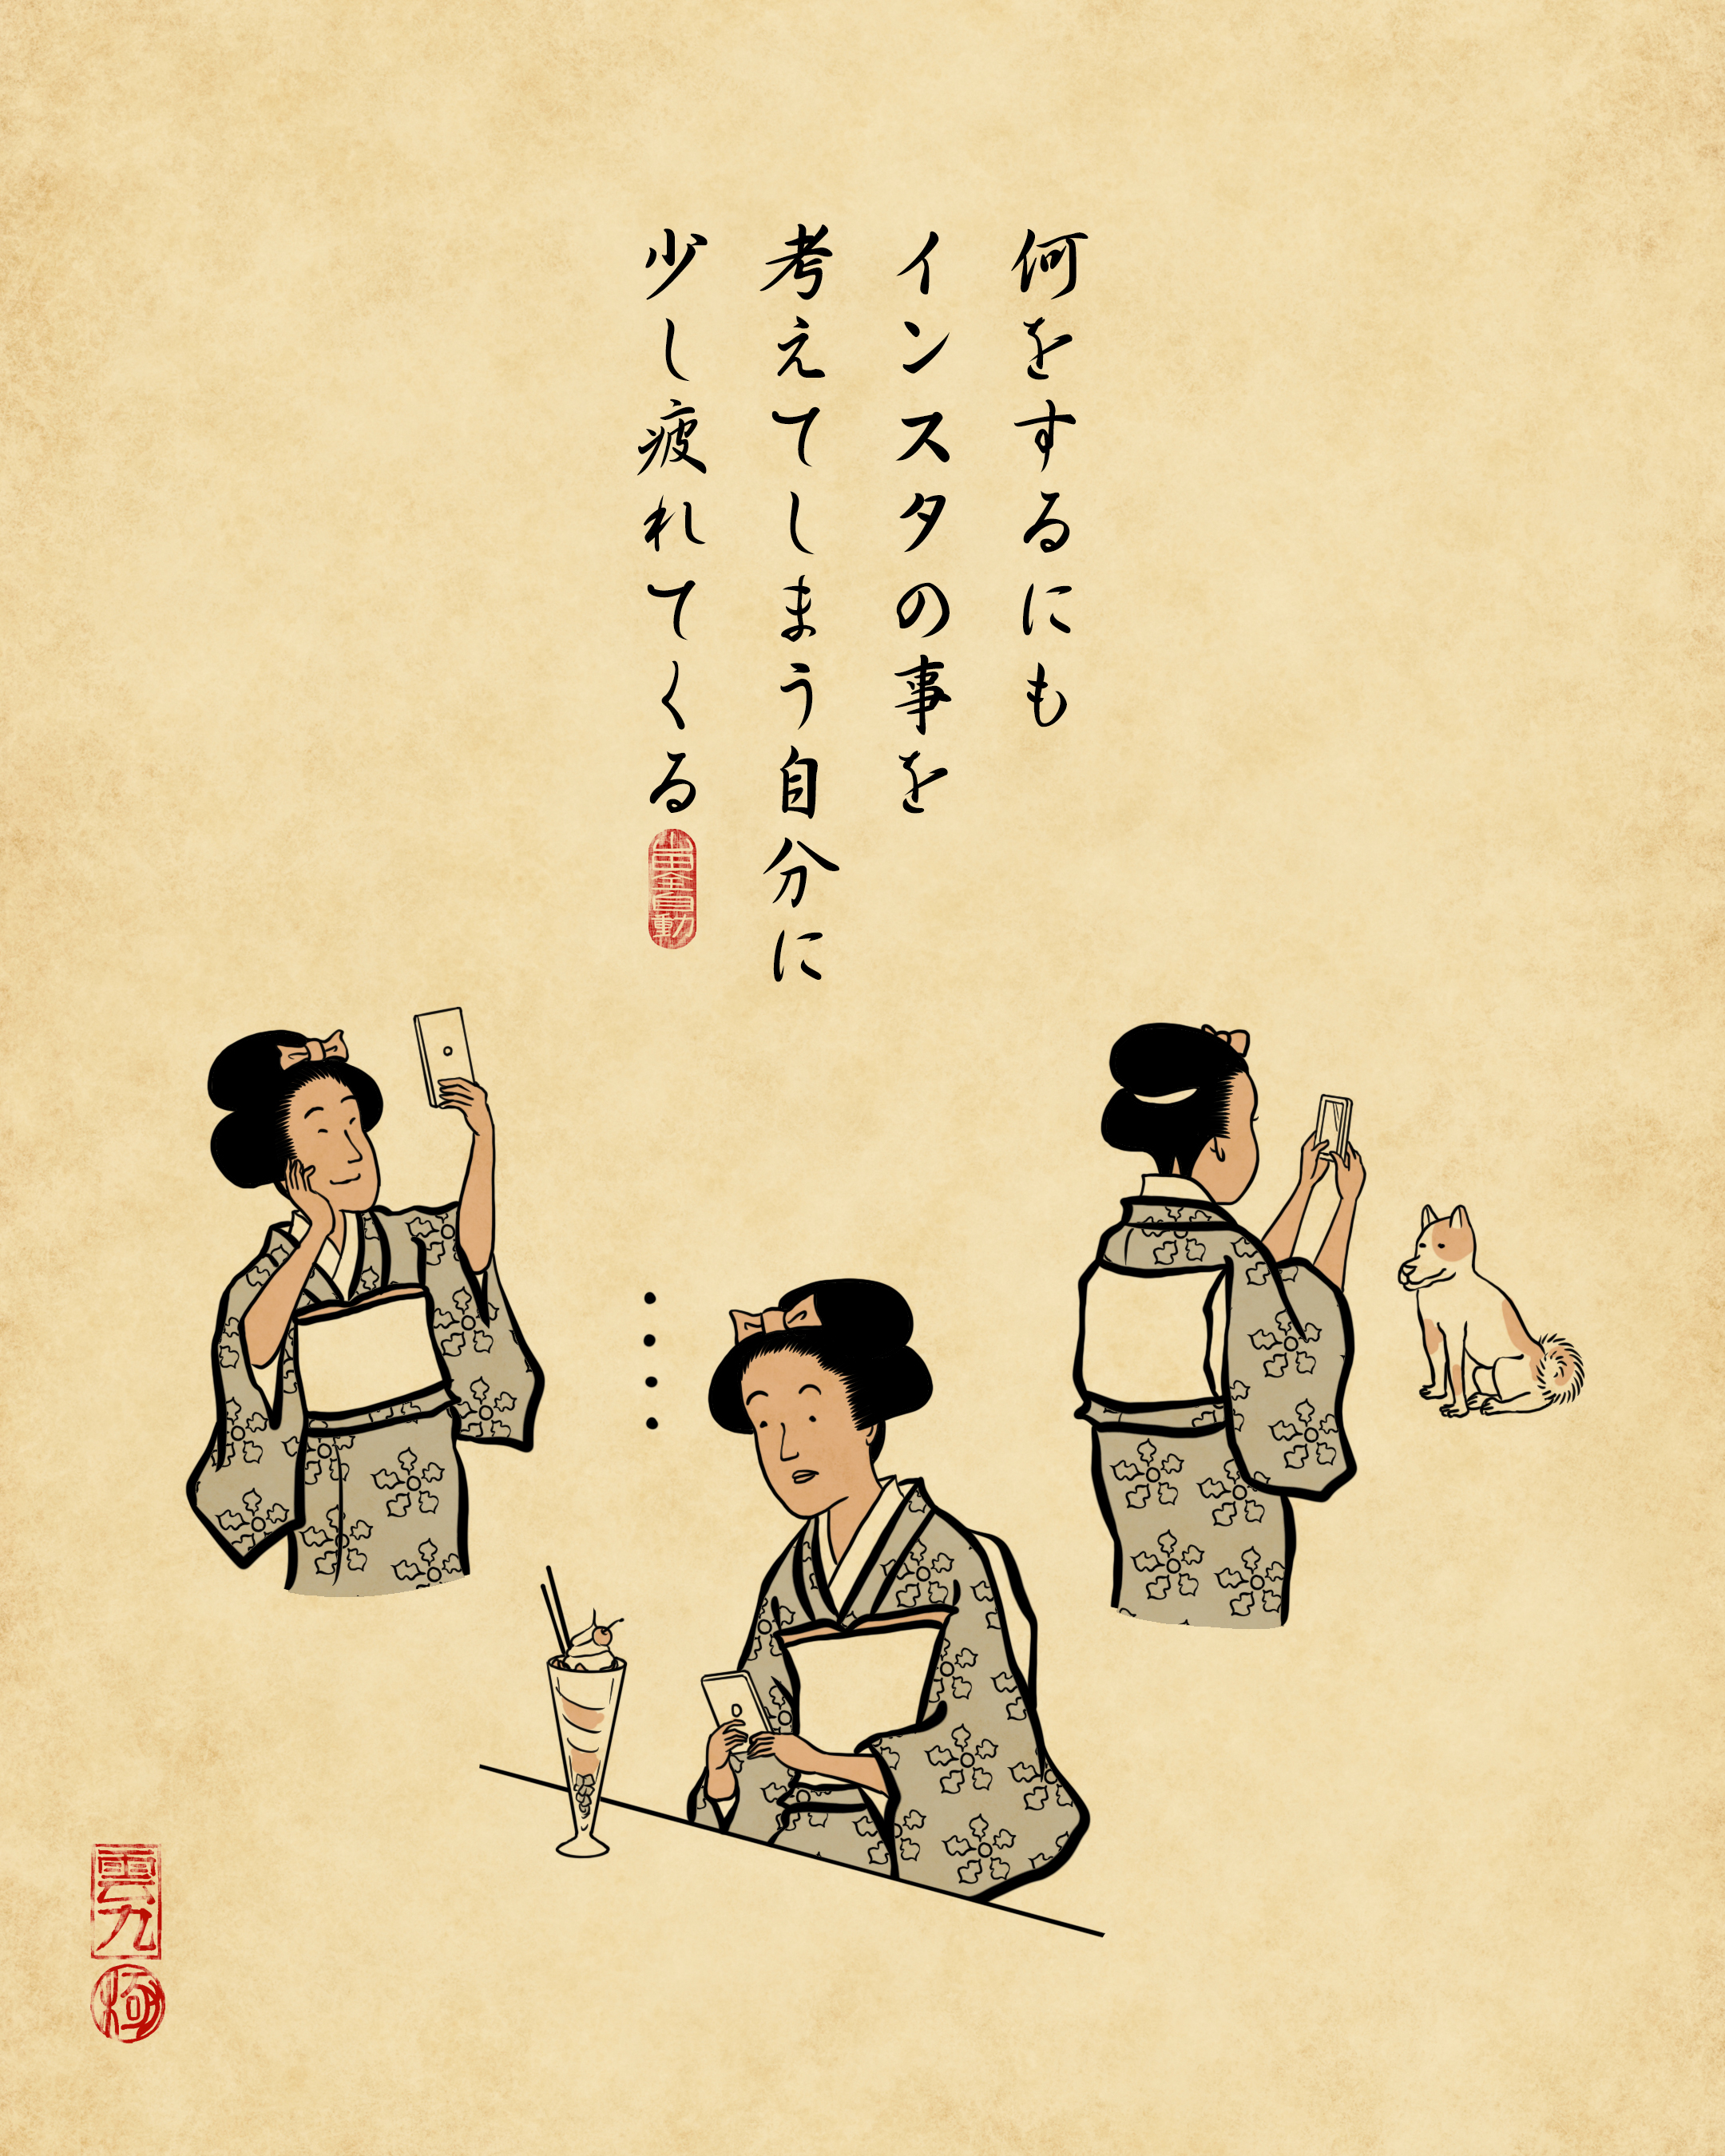 何をするにも
インスタの事を
考えてしまう自分に
少し疲れてくる
山田全自動
雲九
極